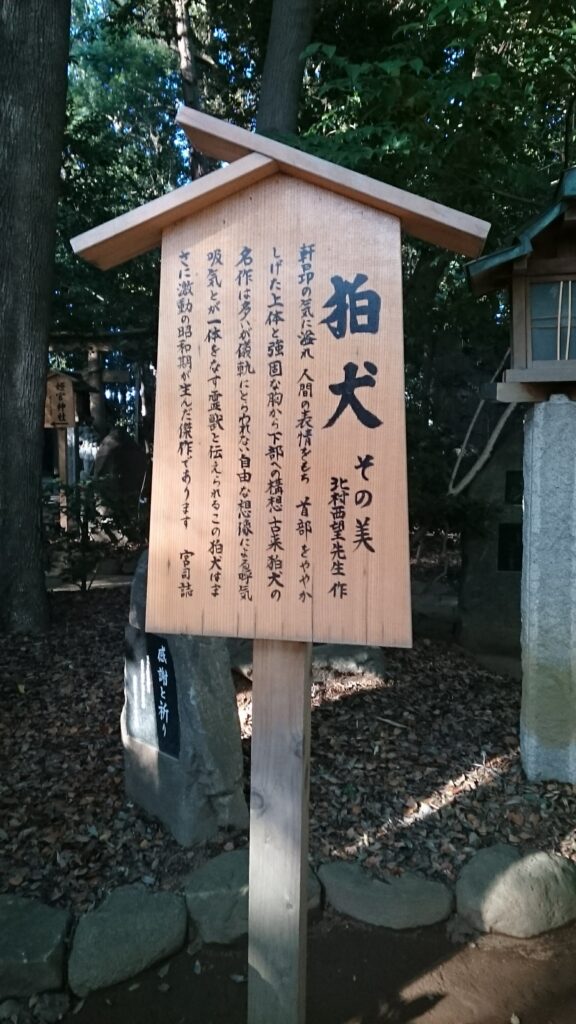 狛犬 その美
北村西望先生 作
軒昂の気に溢れ 人間の表情をもち 首部をややか
しげた上体と強固な胸から下部への構想 古来狛犬の
名作は多いが儀軌にとらわれない自由な想像による呼気
吸気とが一体をなす霊獣と伝えられるこの狛犬はま
さに激動の昭和期が生んだ傑作であります 宮司誌
感謝と祈り
姫宮神社